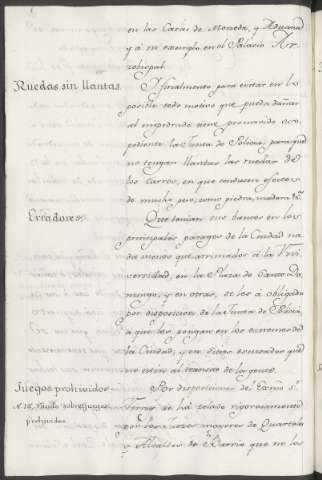 en las Casas de Moneda, y Aduana
y á su exemplo en el Palacio Ar-
zobispal.
Ruedas sin llantas.
Y finalmente para evitar en lo
posible todo motivo que pueda dañar
al empedrado tiene promovido
la Junta de Policia, para que
no tengan llantas las ruedas de
los carros, en que conducen efectos
de mucho peso, como piedra, madera &c.
Erradores.
Que tenian sus bancos en los
principales parages de la Ciudad na
da menos que arrimados á la Vni
versidad, en la Plaza de Santo Do
mingo, y en otras, se les á obligado
por disposicion de la Junta de Policia,
á que los pongan en los extremos de
la Ciudad, y en sitios escusados que
no esten al transito de la gente.
Juegos prohividos
N. 18. Vando sobre juegos
prohividos
Por disposiciones del Exmo. Sr.
Virrey se há celado rigorosamente
por los Jueces mayores de Quartéles
y Alcaldes de Barrio que no los